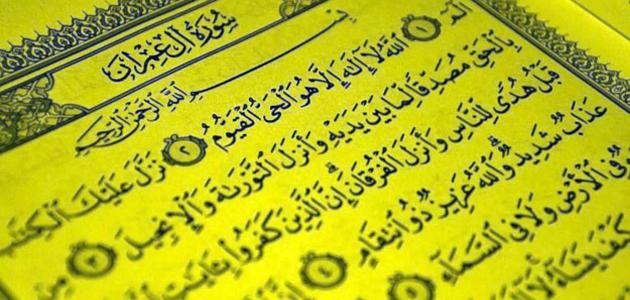 سُورَةُ آلِ عِمْرَانَ
بِسْمِ اللَّهِ الرَّحْمَٰنِ الرَّحِيمِ
الٓمٓ ١ ٱللَّهُ لَآ إِلَٰهَ إِلَّا هُوَ ٱلْحَىُّ ٱلْقَيُّومُ ٢ نَزَّلَ عَلَيْكَ ٱلْكِتَٰبَ
بِٱلْحَقِّ مُصَدِّقًا لِّمَا بَيْنَ يَدَيْهِ وَأَنزَلَ ٱلتَّوْرَىٰةَ وَٱلْإِنجِيلَ ٣ مِن
قَبْلُ هُدًى لِّلنَّاسِ وَأَنزَلَ ٱلْفُرْقَانَ إِنَّ ٱلَّذِينَ كَفَرُوا۟ بِـَٔايَٰتِ
عَذَابٌ شَدِيدٌ وَٱللَّهُ عَزِيزٌ ذُو ٱنتِقَامٍ ٤
فِى ٱلْأَرْضِ وَلَا فِى ٱلسَّمَآءِ ٥
كَيْفَ يَشَآءُ لَآ